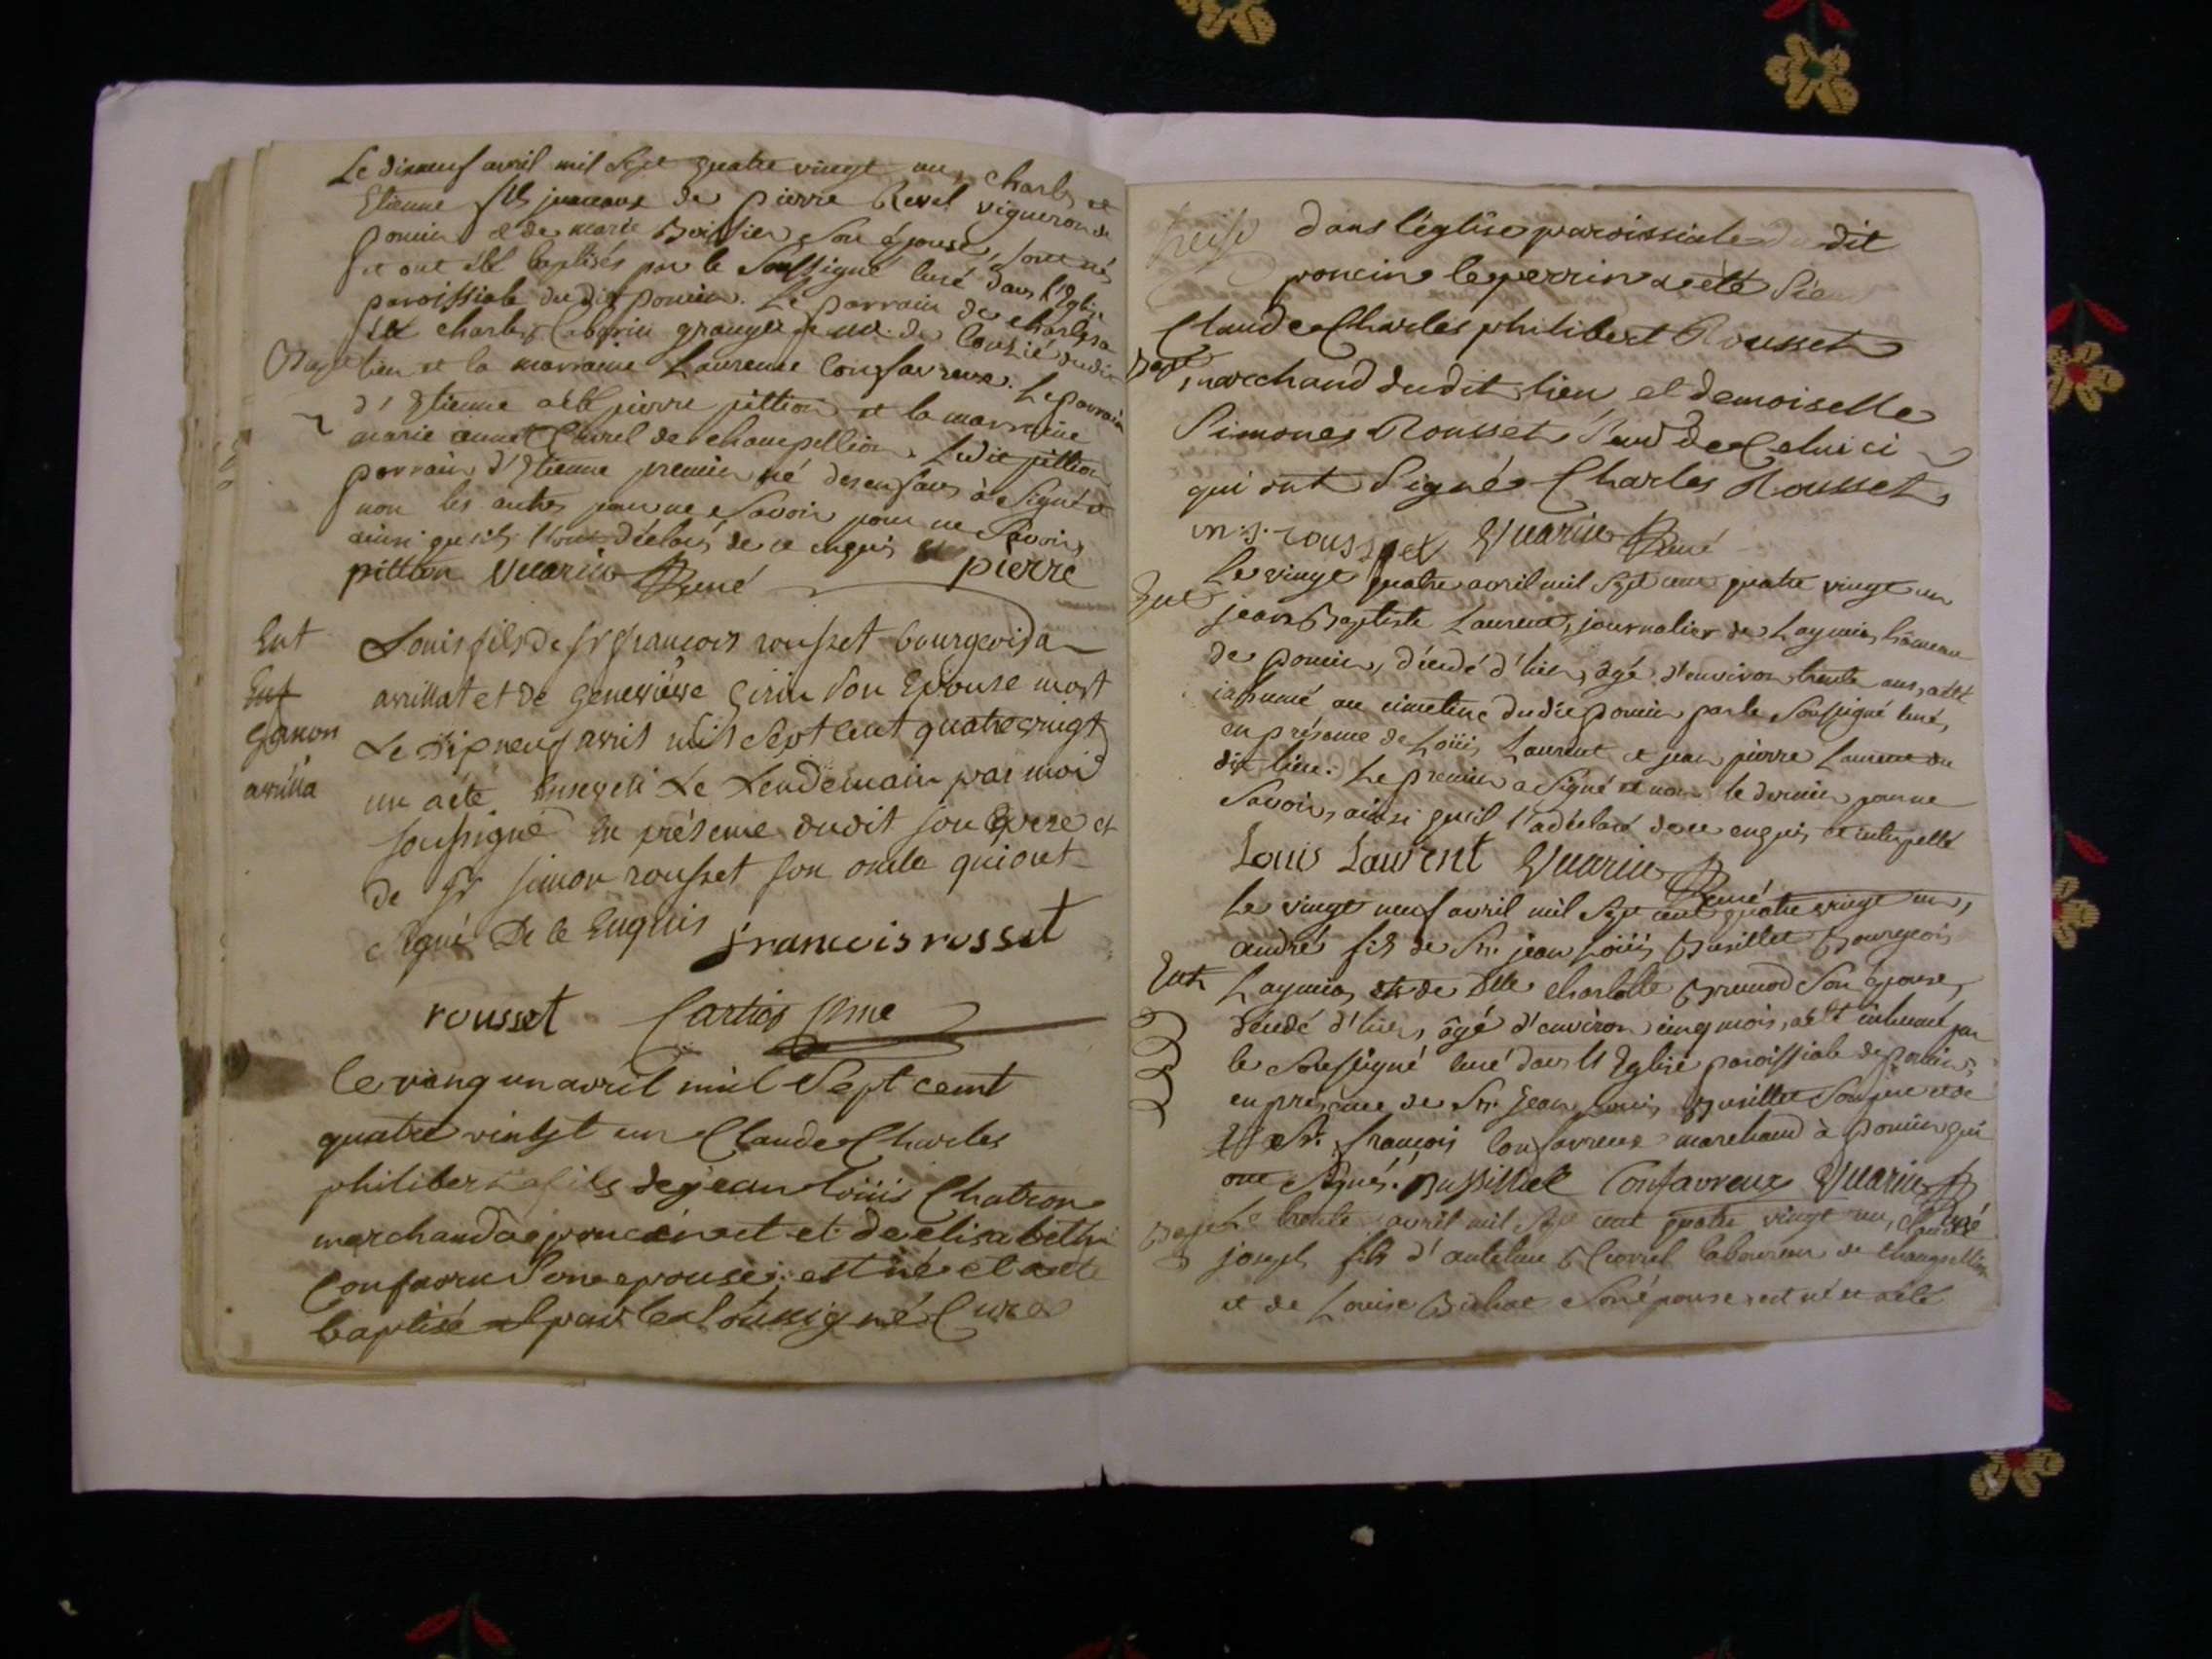 Le dixneuf avril mil Sept quatre vingt un, charles et
Etienne fils jumeaux de pierre Revel vigneron de
poncin et de marie Boissier son épouse, sont nés
et ont été baptisés par le Soussigné Curé dans l'Eglise
paroissiale dudit poncin. Le parrain de charles a
été charles granger de dudit
Bapt lieu et la marraine Laurence Confavreux. Le parrain
d'Etienne a été pierre pittion et la marraine
marie anne Chevrel de champellion. Ledit pittion
parrain d'Etienne premier né des enfans a Signé et
non les autres pour ne Savoir pour ne Savoir,
ainsi qu'ils l'ont déclaré de ce enquis
pittion Vuarin Curé pierre
Ent Louis fils de Sr françois rousset bourgeois a
Enf arillat et de genevieve Girin Son Epouse mort
garcon Le dixneuf avril mil Sept Cent quatre vingt
arilla un a été Enseveli Le Lendemain par moi
soussigné En présence dudit son pere et
de Sr simon rousset son oncle qui ont
signé De Ce Enquis francois rosset
rousset Cartier
le vingt un avril mil Sept cent
quatre vintgt un Claude Charles
philibert fils de jean loüis Chatron
marchand a poncin et et de elisabeth
Confavru Sone epouse; est né et a eté
baptisé et par le Soussigné Curé
treise dans l'églîse paroissiale du dit
poncin le perrin a eté Sieur
Claude Charles philibert Rousset
Bapt marchand dudit lieu et demoiselle
Simone Rousset de Celui ci
qui ont Signé Charles Rousset
m. s. rousset Vuarin Curé
Ent Le vingt quatre avril mil Sept cent quatre vingt un
jean Baptiste Laurent, journalier de Leymia, hâmeau
de poncin, décédé d'hier, âgé d'environ trente ans, a été
inhumé au cimetiere dudit poncin par le Soussigné Curé,
en présence de Loüis Laurent et jean pierre Laurent du
dit lieu. Le premier a Signé et non le dernier pour ne
Savoir, ainsi qu'il l'a déclaré de ce enquis et interpellé
Louis Laurent Vuarin Curé
Le vingt neuf avril mil Sept cent quatre vingt un,
andré fils de Sr. jean Loüis Bussillet Bourgeois
Ent Leymia, et de Dlle charlotte Brunod Son épouse,
décédé d'hier, âgé d'environ cinq mois, a été inhumé par
le Soussigné Curé dans l'Eglise paroissiale de poncin,
en présence de Sr. Jean Louis Bussillet Son pere et de
Sr. françois Confavreux marchand à poncin qui
ont Signés. Bussillet Confavreux Vuarin Curé
Bapt Le trente avril mil Sept cent quatre vingt un, Claude
joseph fils d'antelme Chevrel laboureur de Champellion
et de Louise Bichat Son épouse est né et a été